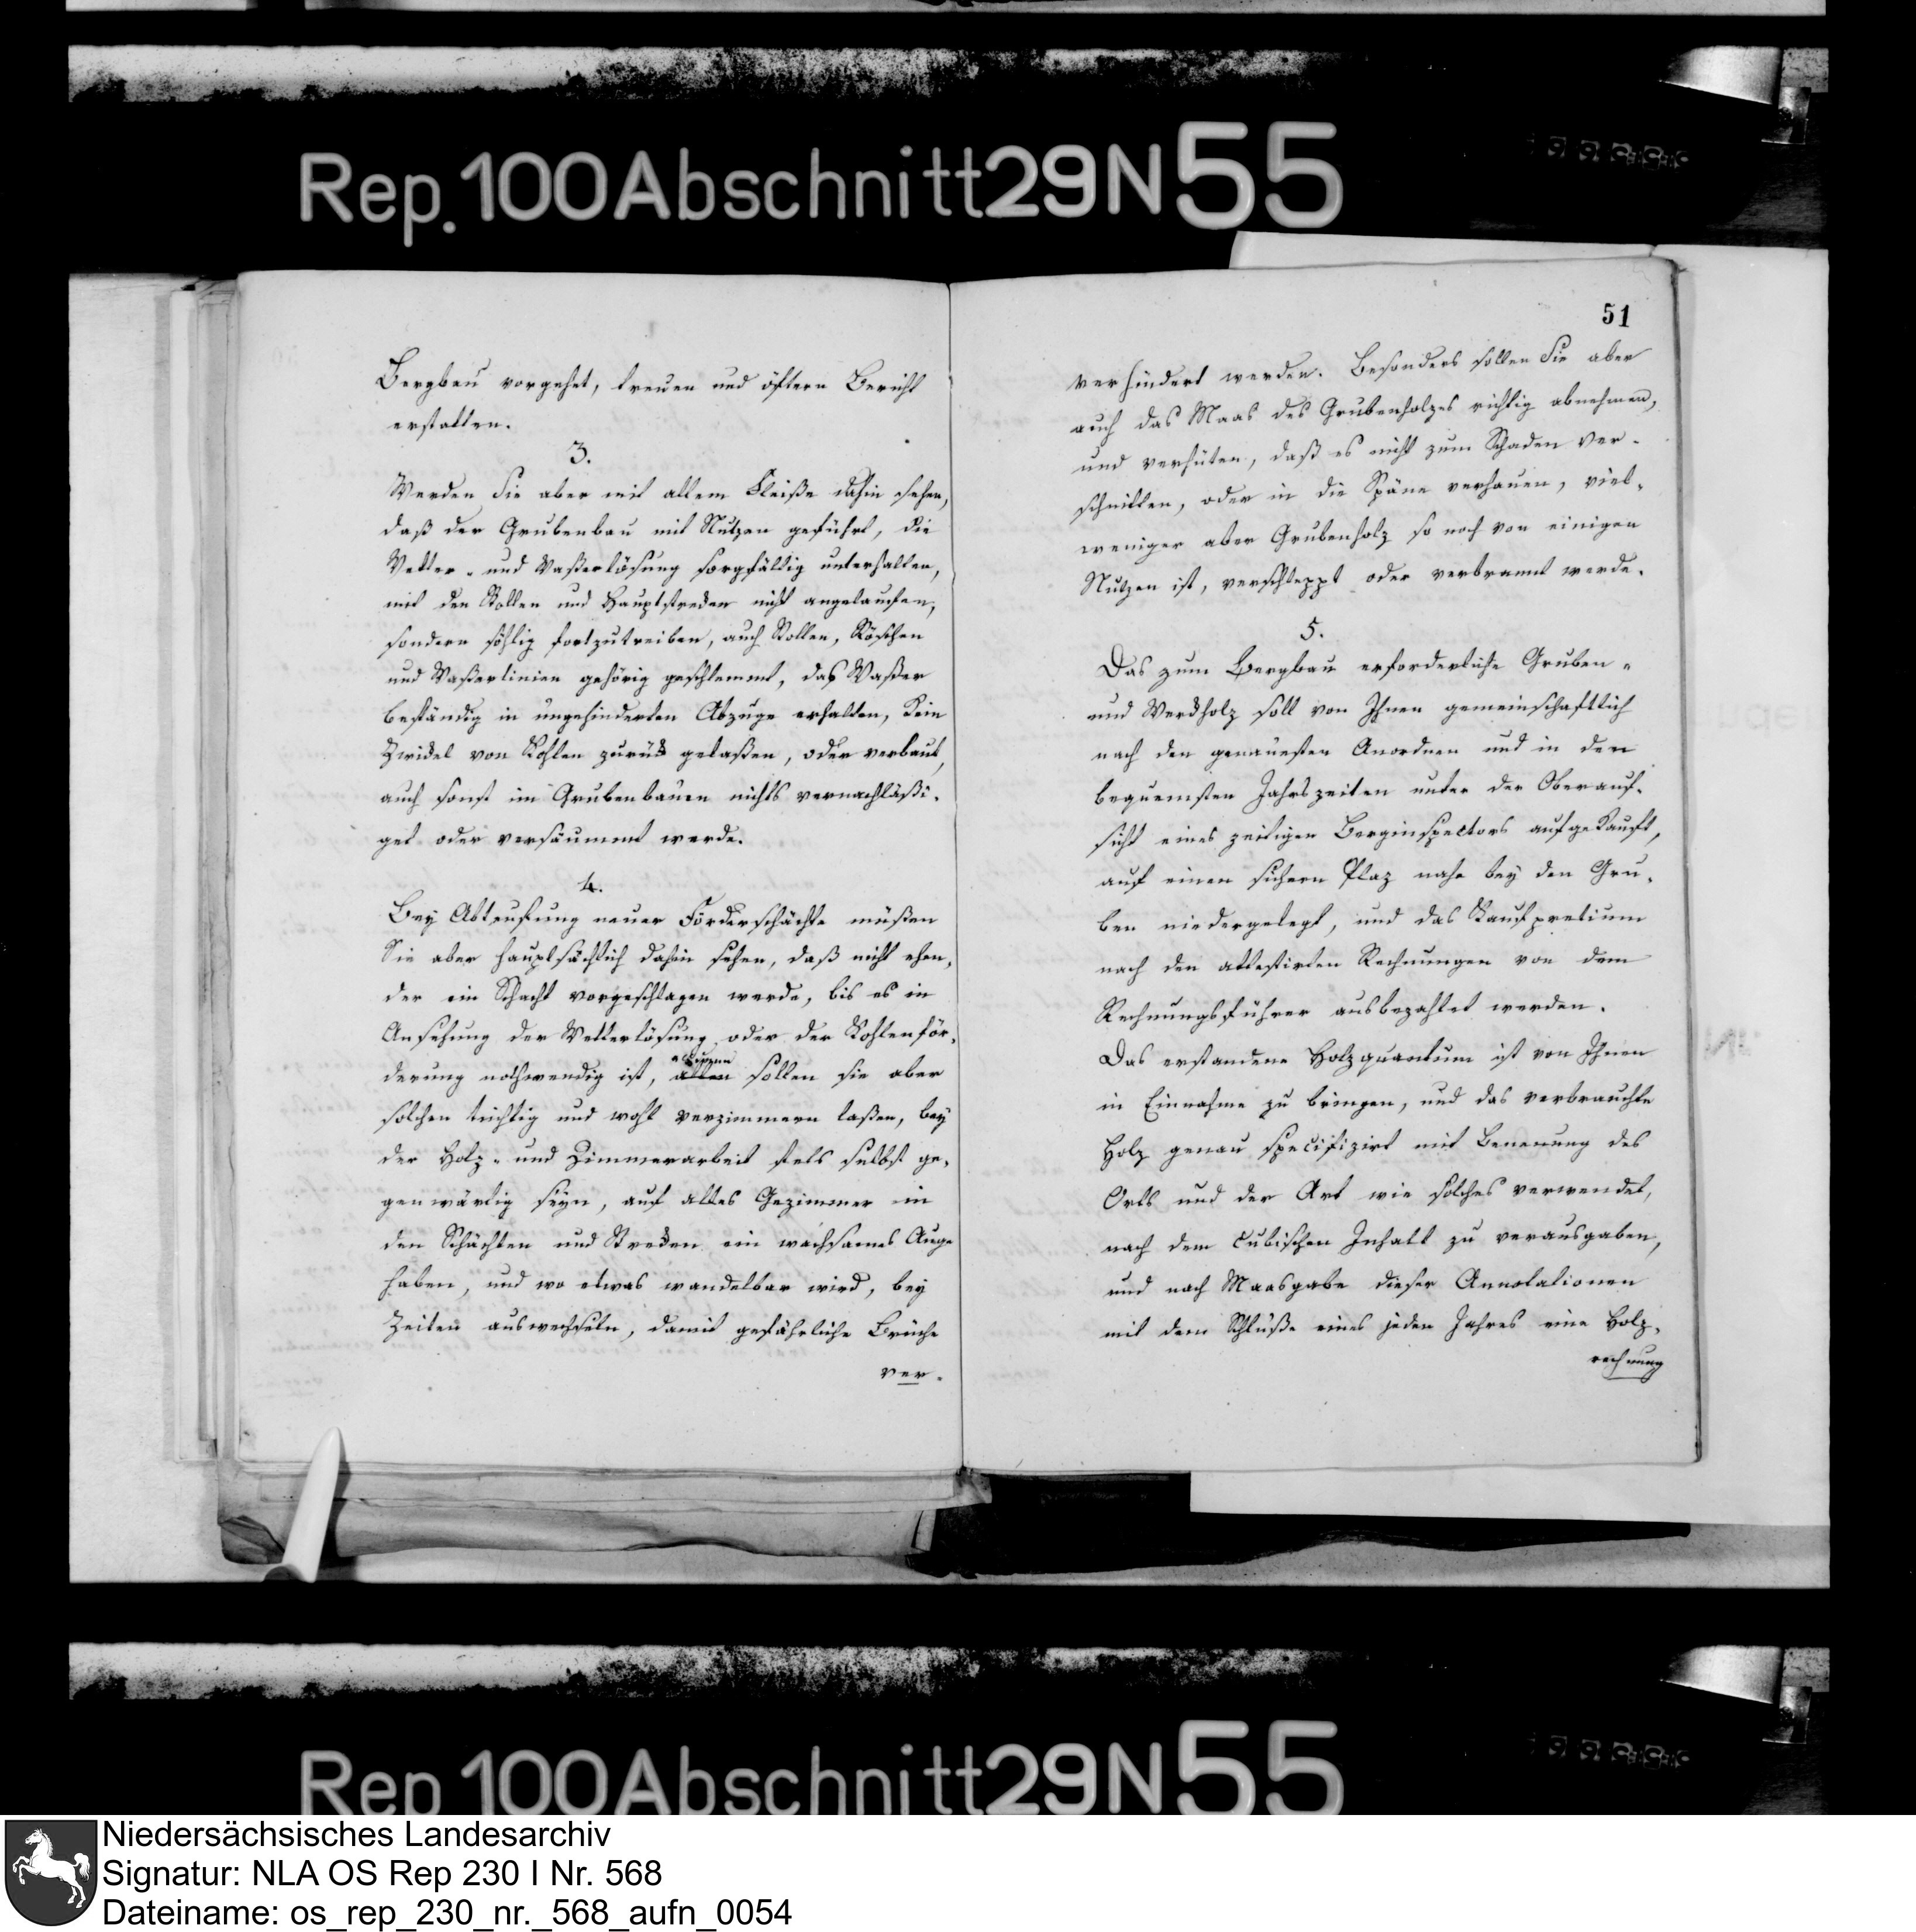 Rep. 100 Abschnitt 29 N 55
Bergbau vorgehet, treuen und öftern Bericht
erstatten.
3.
Werden Sie aber mit allem Fleiße dahin sehen,
daß der Grubenbau mit Nutzen geführt, die
Wetter- und Waßerlösung sorgfältig unterhalten,
mit den Stollen und Hauptstrecken nicht angelaufen,
sondern söhlig fortzutreiben, auch Stollen, Röschen
und Waßerlinien gehörig geschlemmt, das Waßer
beständig in ungehinderten Abzuge erhalten, kein
Zwickel von Kohlen zurück gelaßen, oder verbaut,
auch sonst im Grubenbauen nichts vernachläßi-
get oder versäummt werde.
4.
Bey Abteufung neuer Förderschächte müßen
Sie aber hauptsächlich dahin sehen, daß nicht ehen-
der ein Schacht vorgeschlagen werde, bis es in
Ansehung der Wetterlösung oder der Kohlenför-
derung nothwendig ist, allen sollen sie aber
solchen tüchtig und wohl verzimmern laßen, bey
der Holz- und Zimmerarbeit stets selbst ge-
genwärtig seyn, auf altes Gezimmer in
den Schächten und Strecken ein wachsames Auge
haben, und wo etwas wandelbar wird, bey
Zeiten auswechseln, damit gefährliche Brüche
ver-
51
verhindert werden. Besonders sollen Sie aber
auch das Maas des Grubenholzes richtig abnehmen,
und verhüten, daß es nicht zum Schaden ver-
schnitten, oder in die Späne verhauen, viel-
weniger aber Grubenholz so noch von einigen
Nutzen ist, verschleppt oder verbrannt werde.
5.
Das zum Bergbau erforderliche Gruben-
und Werckholz soll von Ihnen gemeinschaftlich
nach den genauesten Anordnen und in den
bequemsten Jahrszeiten unter der Oberauf-
sicht eines zeitigen Berginspectors aufgekauft,
auf einen sichern Plaz nahe bey den Gru-
ben niedergelegt, und das Kaufpretium
nach den attestirten Rechnungen von dem
Rechnungsführer ausbezahlet werden.
Das erstandene Holzquantum ist von Ihnen
in Einnahme zu bringen, und das verbrauchte
Holz genau specifizirt mit Benenung des
Orts und der Art wie solches verwendet,
nach dem cubischen Inhalt zu verausgaben,
und nach Maasgabe dieser Annotationen
mit dem Schluße eines jeden Jahres eine Holz-
rechnung
Rep 100 Abschnitt 29 N 55
Niedersächsisches Landesarchiv
Signatur: NLA OS Rep 230 I Nr. 568
Dateiname: os_rep_230_nr._568_aufn_0054